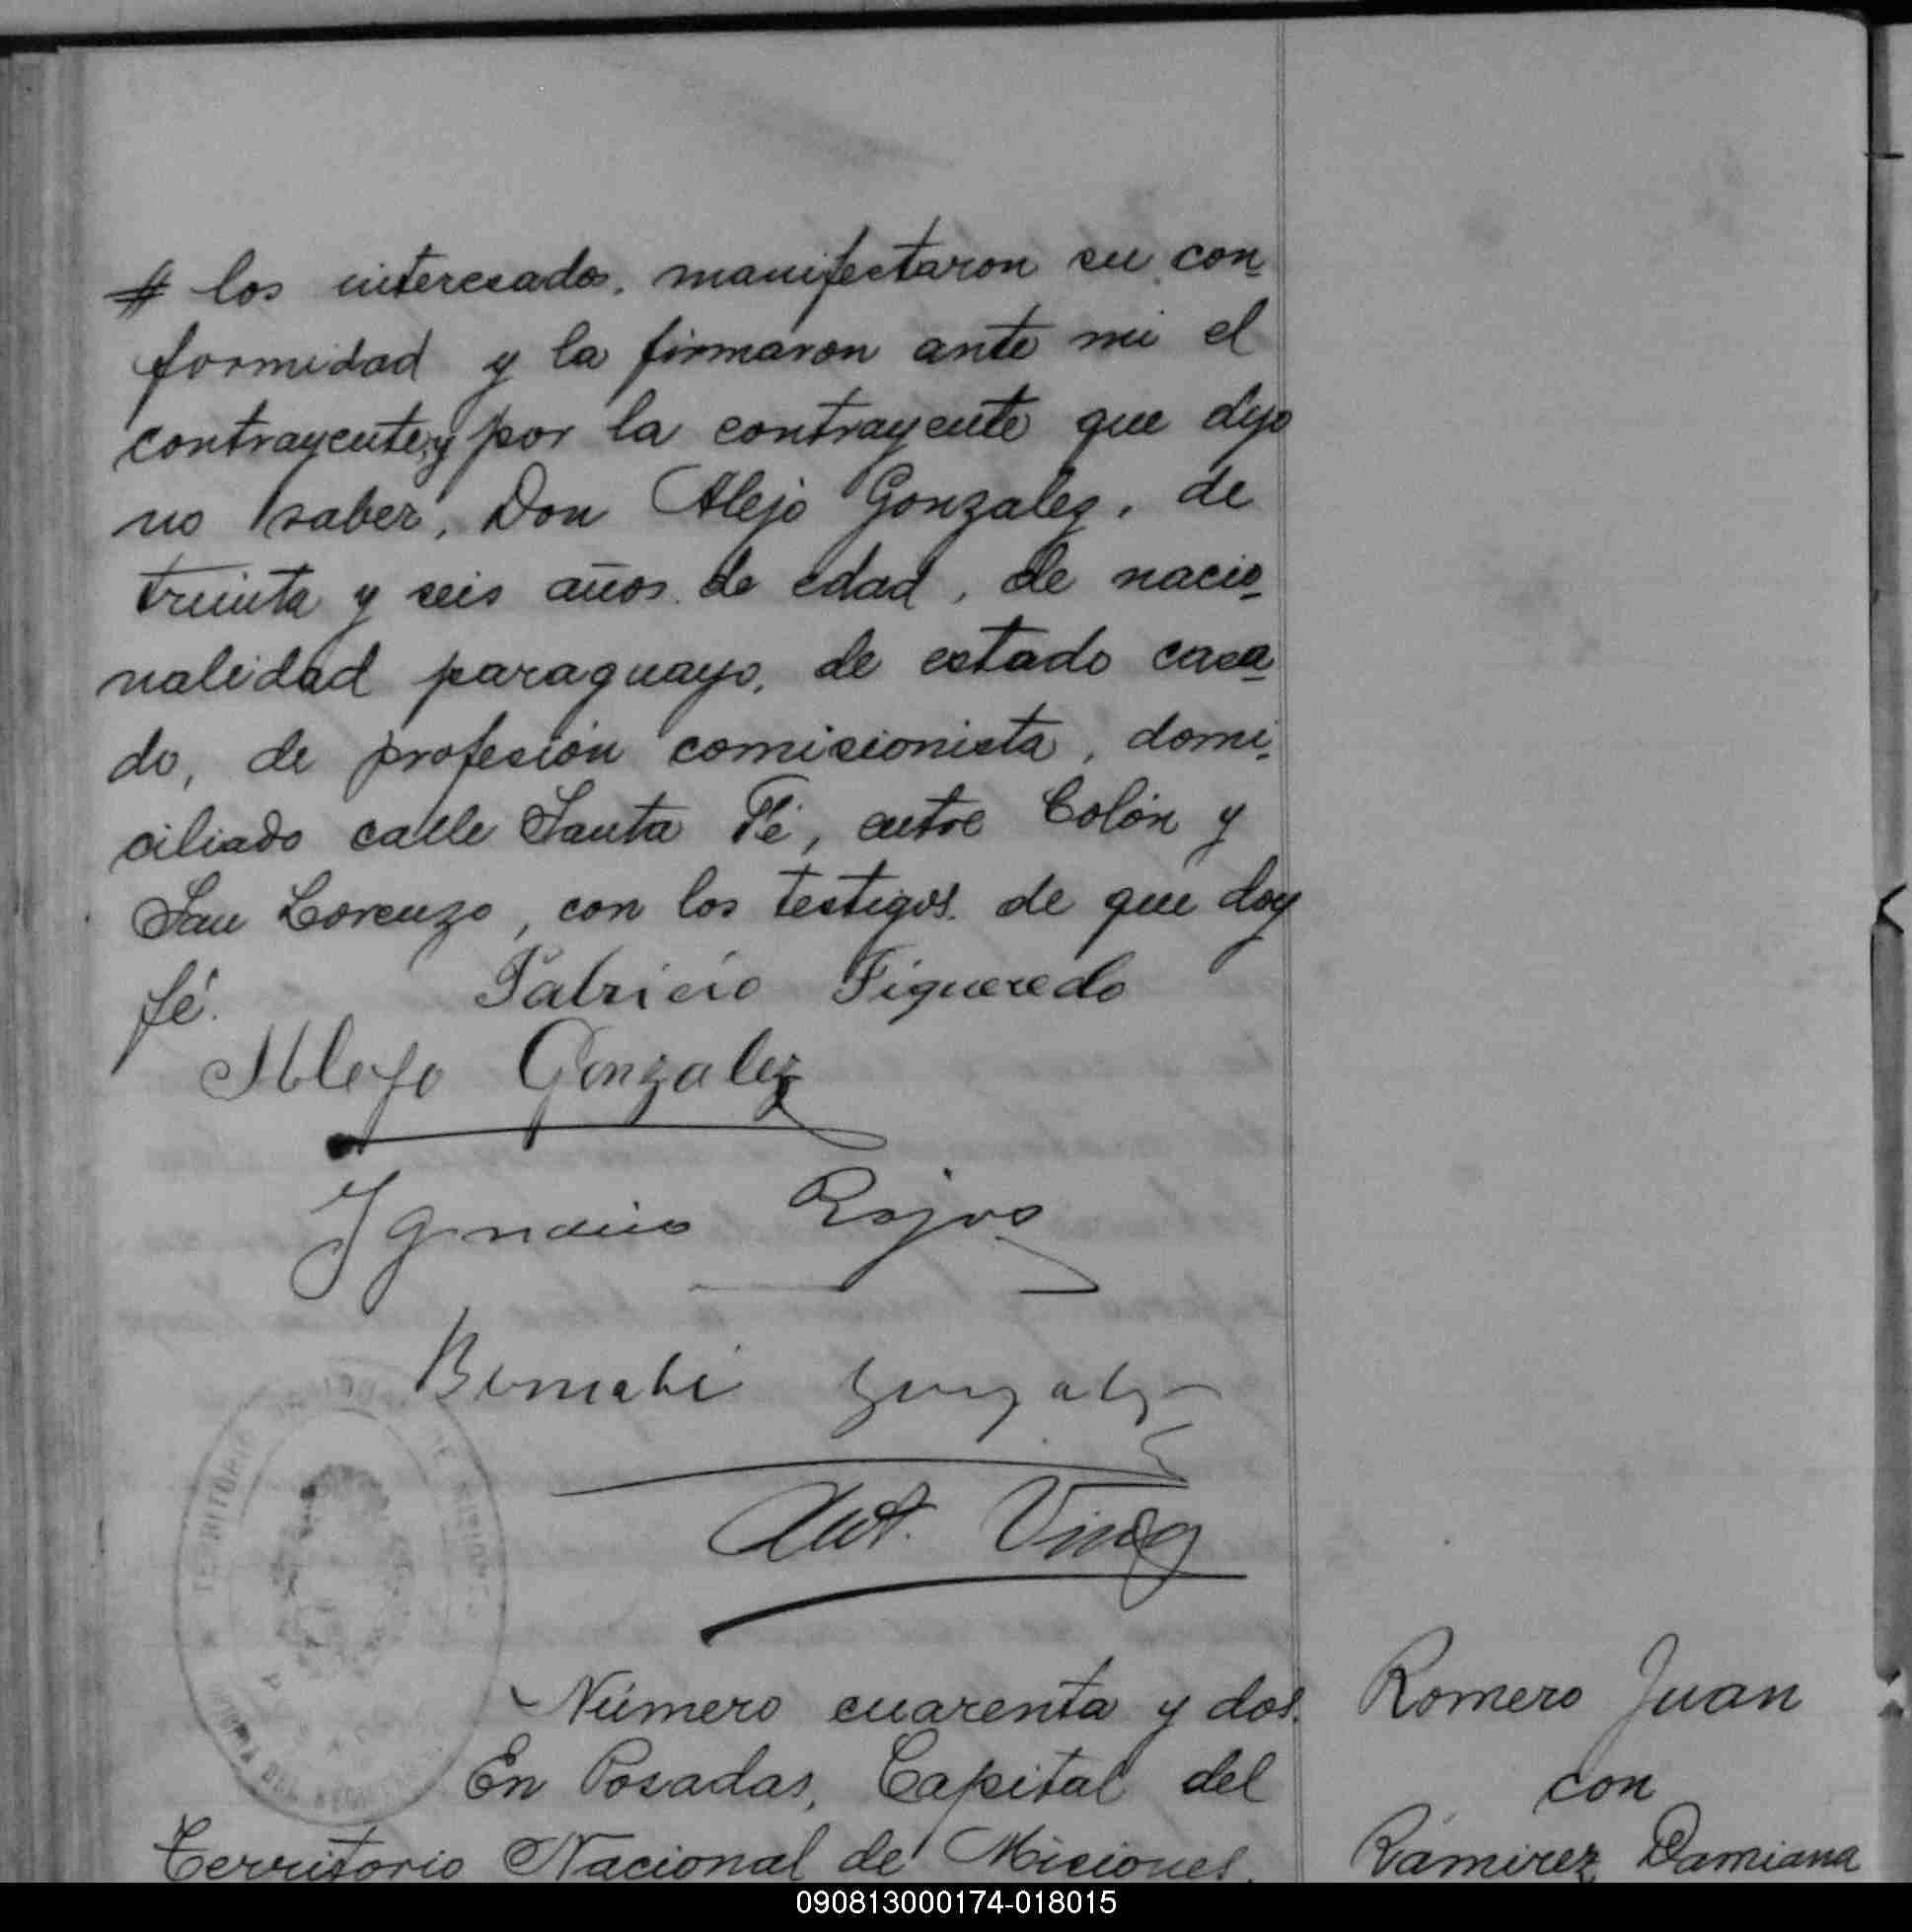 # los interesados, manifestaron su con-
formidad y la firmaron ante mi el
contrayente, y por la contrayente que dijo
no saber, Don Alejo Gonzalez, de
treinta y seis años de edad, de nacio-
nalidad paraguayo, de estado casa-
do, de profesión comisionista, domi-
ciliado calle Santa Fé, entre Colón y
San Lorenzo, con los testigos de que doy
fé.
Patricio Figueredo
Alejo Gonzalez
Ygnacio Rojas
Bernabé Gonzalez
Ant.
TERRITORIO
Número cuarenta y dos.
En Posadas, Capital del
Territorio Nacional de Misiones,
Romero Juan
con
Rámirez Damiana
090813000174-018015